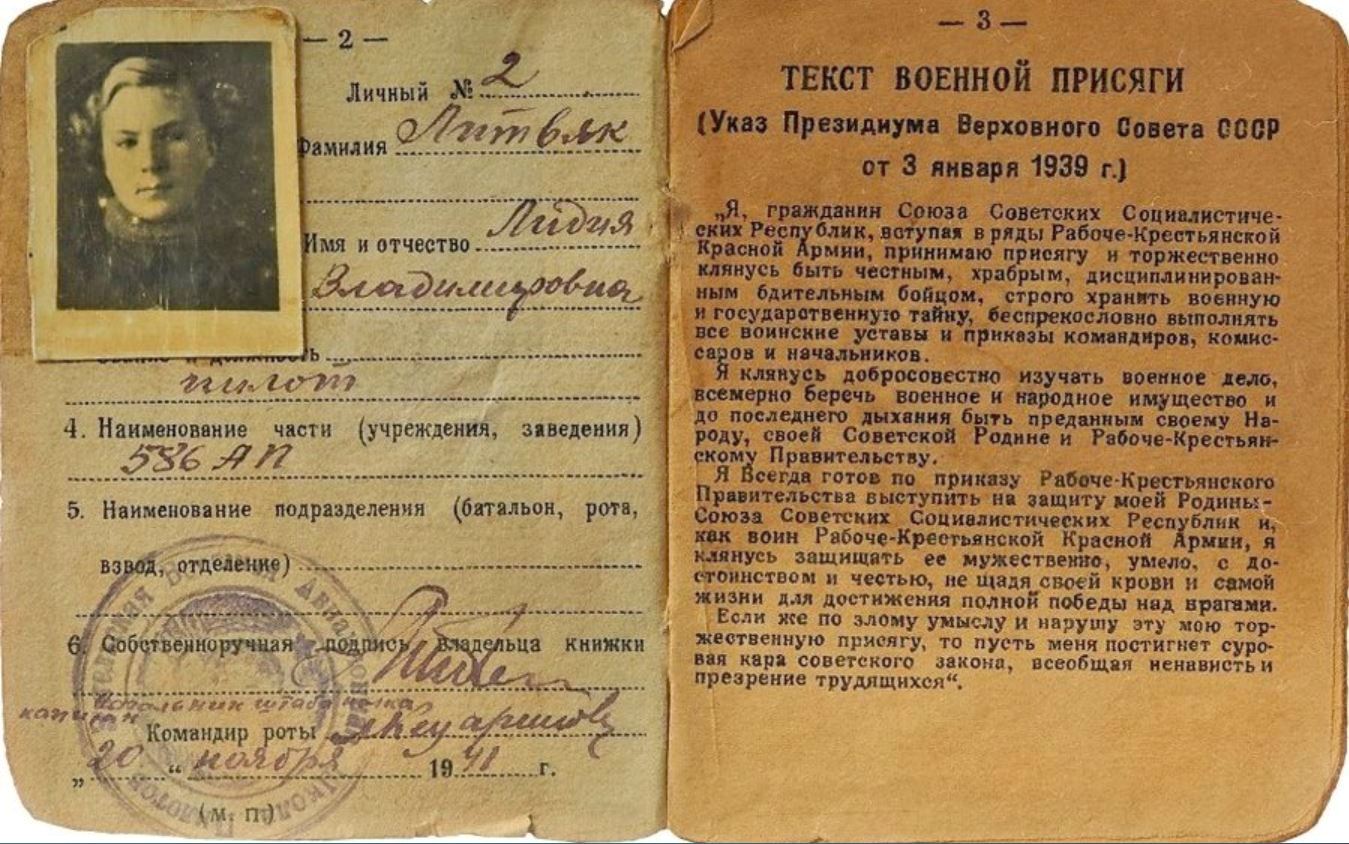 — 2 —
Личный № 2
Фамилия Литвяк
Имя и отчество Лидия
Владимировна
Звание и должность
пилот
4. Наименование части (учреждения, заведения)
586 АП
5. Наименование подразделения (батальон, рота,
взвод, отделение)
6. Собственноручная подпись владельца книжки
Начальник штаба полка
капитан
Командир роты
„20“ ноября 1941 г.
(м. п.)
— 3 —
ТЕКСТ ВОЕННОЙ ПРИСЯГИ
(Указ Президиума Верховного Совета СССР
от 3 января 1939 г.)
„Я, гражданин Союза Советских Социалистиче-
ских Республик, вступая в ряды Рабоче-Крестьянской
Красной Армии, принимаю присягу и торжественно
клянусь быть честным, храбрым, дисциплинирован-
ным бдительным бойцом, строго хранить военную
и государственную тайну, беспрекословно выполнять
все воинские уставы и приказы командиров, комис-
саров и начальников.
Я клянусь добросовестно изучать военное дело,
всемерно беречь военное и народное имущество и
до последнего дыхания быть преданным своему На-
роду, своей Советской Родине и Рабоче-Крестьян-
скому Правительству.
Я Всегда готов по приказу Рабоче-Крестьянского
Правительства выступить на защиту моей Родины-
Союза Советских Социалистических Республик и,
как воин Рабоче-Крестьянской Красной Армии, я
клянусь защищать ее мужественно, умело, с до-
стоинством и честью, не щадя своей крови и самой
жизни для достижения полной победы над врагами.
Если же по злому умыслу и нарушу эту мою тор-
жественную присягу, то пусть меня постигнет суро-
вая кара советского закона, всеобщая ненависть и
презрение трудящихся“.